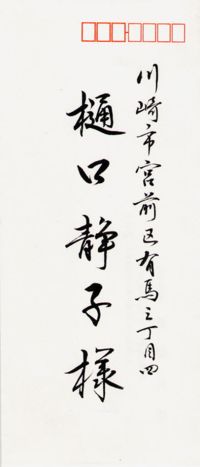 川崎市宮前区有馬三丁目四
樋口静子様